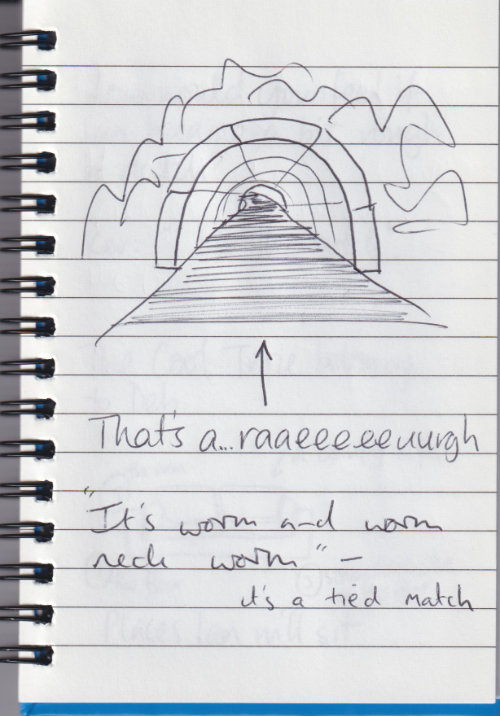 That's a...raaeeeeeuurgh
"It's worm and worm
neck worm" –
it's a tied match